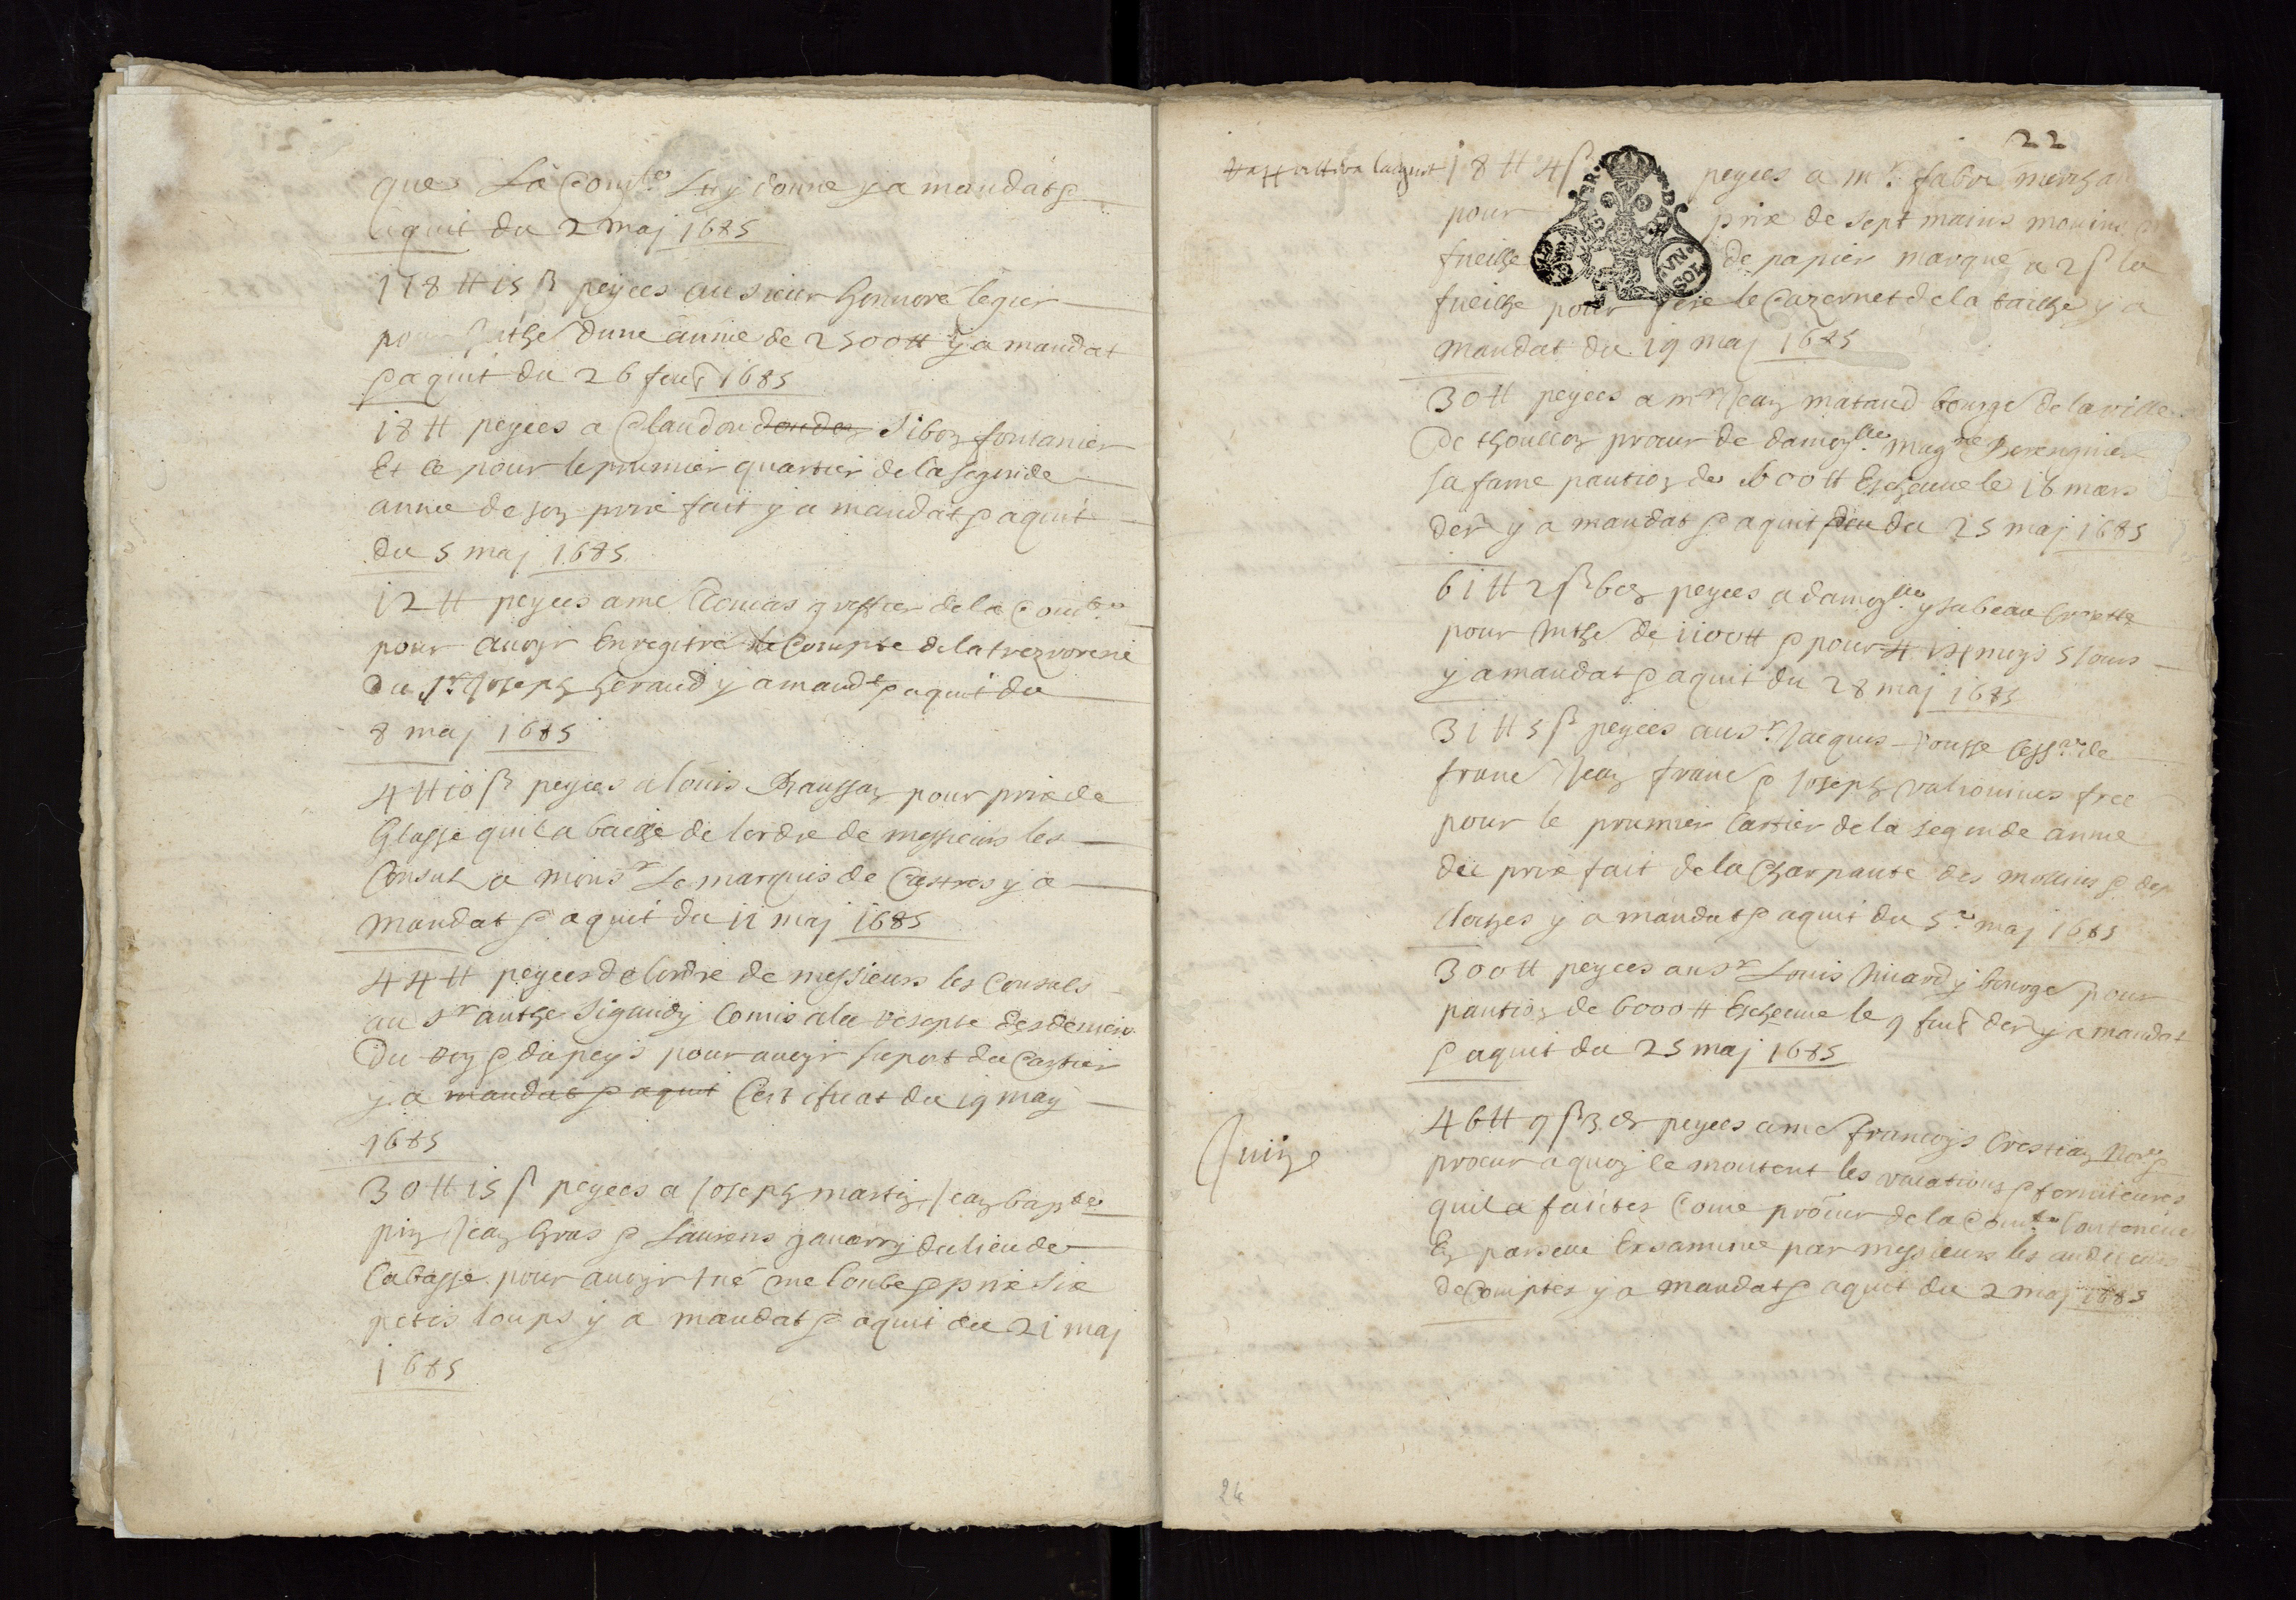 que La Com.te Luy donne y a mandat et
aquit du 2 maj 1685
118 ₶ 15 ß peyees au sieur honnoré legier
pour dune année de 2500 ₶ y a mandat
et aquit du 26 feur 1685
18 ₶ peyees a Claudou doudon Siboy fontanier
Et ce pour le prumier quartier de la segonde
annee de soy prix fait y a mandat et aquit
du 5 maj 1685
12 ₶ peyees a me greffier de la Com.te
pour avoyr Enregitré le Compte de la trezorerie
du Sr Joseph heraud y a mandt et aquit du
8 maj 1685
4 ₶ 10 ß peyees a louis Raussan pour prix de
Glasse quil a baillé de lordre de messieurs les
Consuls a monsr Le marquis de Castres y a
mandat et aquit du 11 maj 1685
44 ₶ peyees de lordre de messieurs les Consuls
au Sr anthe Sigaudy Comis a la resepte des deniers
du roy et du peys pour avoyr suport du Cartier
y a mandat et aquit Certificat du 19 may
1685
30 ₶ 15 ß peyees a Joseph martin Jean bapte
pin Jean Gras et Laurens gavarry du lieu de
Cabasse pour avoyr tué une loube et prix six
petis loups y a mandat et aquit du 21 maj
1685
22
18 ₶ 4 ß peyees a mr fabre
pour prix de sept mains
fueilhe de papier marqué a 2 ß la
fueilhe pour fere le Cazernet de la tailhe y a
mandat du 19 maj 1685
30 ₶ peyees a mr Jean mataud bourge de la ville
de thoullon procur de damoylle magne Berenguier
sa fame pantion de 600 ₶ Escheue le 16 mars
der y a mandat et aquit du 25 maj 1685
61 ₶ 2 ß 6 d peyees a damoylle ysabeau
pour inthe de 1100 ₶ et pour moys 5 Jours
y a mandat et aquit du 28 maj 1685
31 ₶ 5 ß peyees au sr Jacques rousse de
franc Jean franc et Joseph
pour le prumier Cartier de la segonde annee
du prix fait de la Charpante des moulins et des
cloches y a mandat et aquit du 5e maj 1685
300 ₶ peyees au sr Louis bourge pour
pantion de 6000 ₶ Escheue le 9 feur der y a mandat
et aquit du 25 maj 1685
Juin
46 ₶ 9 ß 3 d peyees a me francoys Crestian Nore et
procur a quoy ce montent les vacations et fornitures
quil a faites Come procur de la Com.te
En parselle Exsaminé par messieurs les auditeurs
de Comptes y a mandat et aquit du 2 maj 1685
24
VN SOL